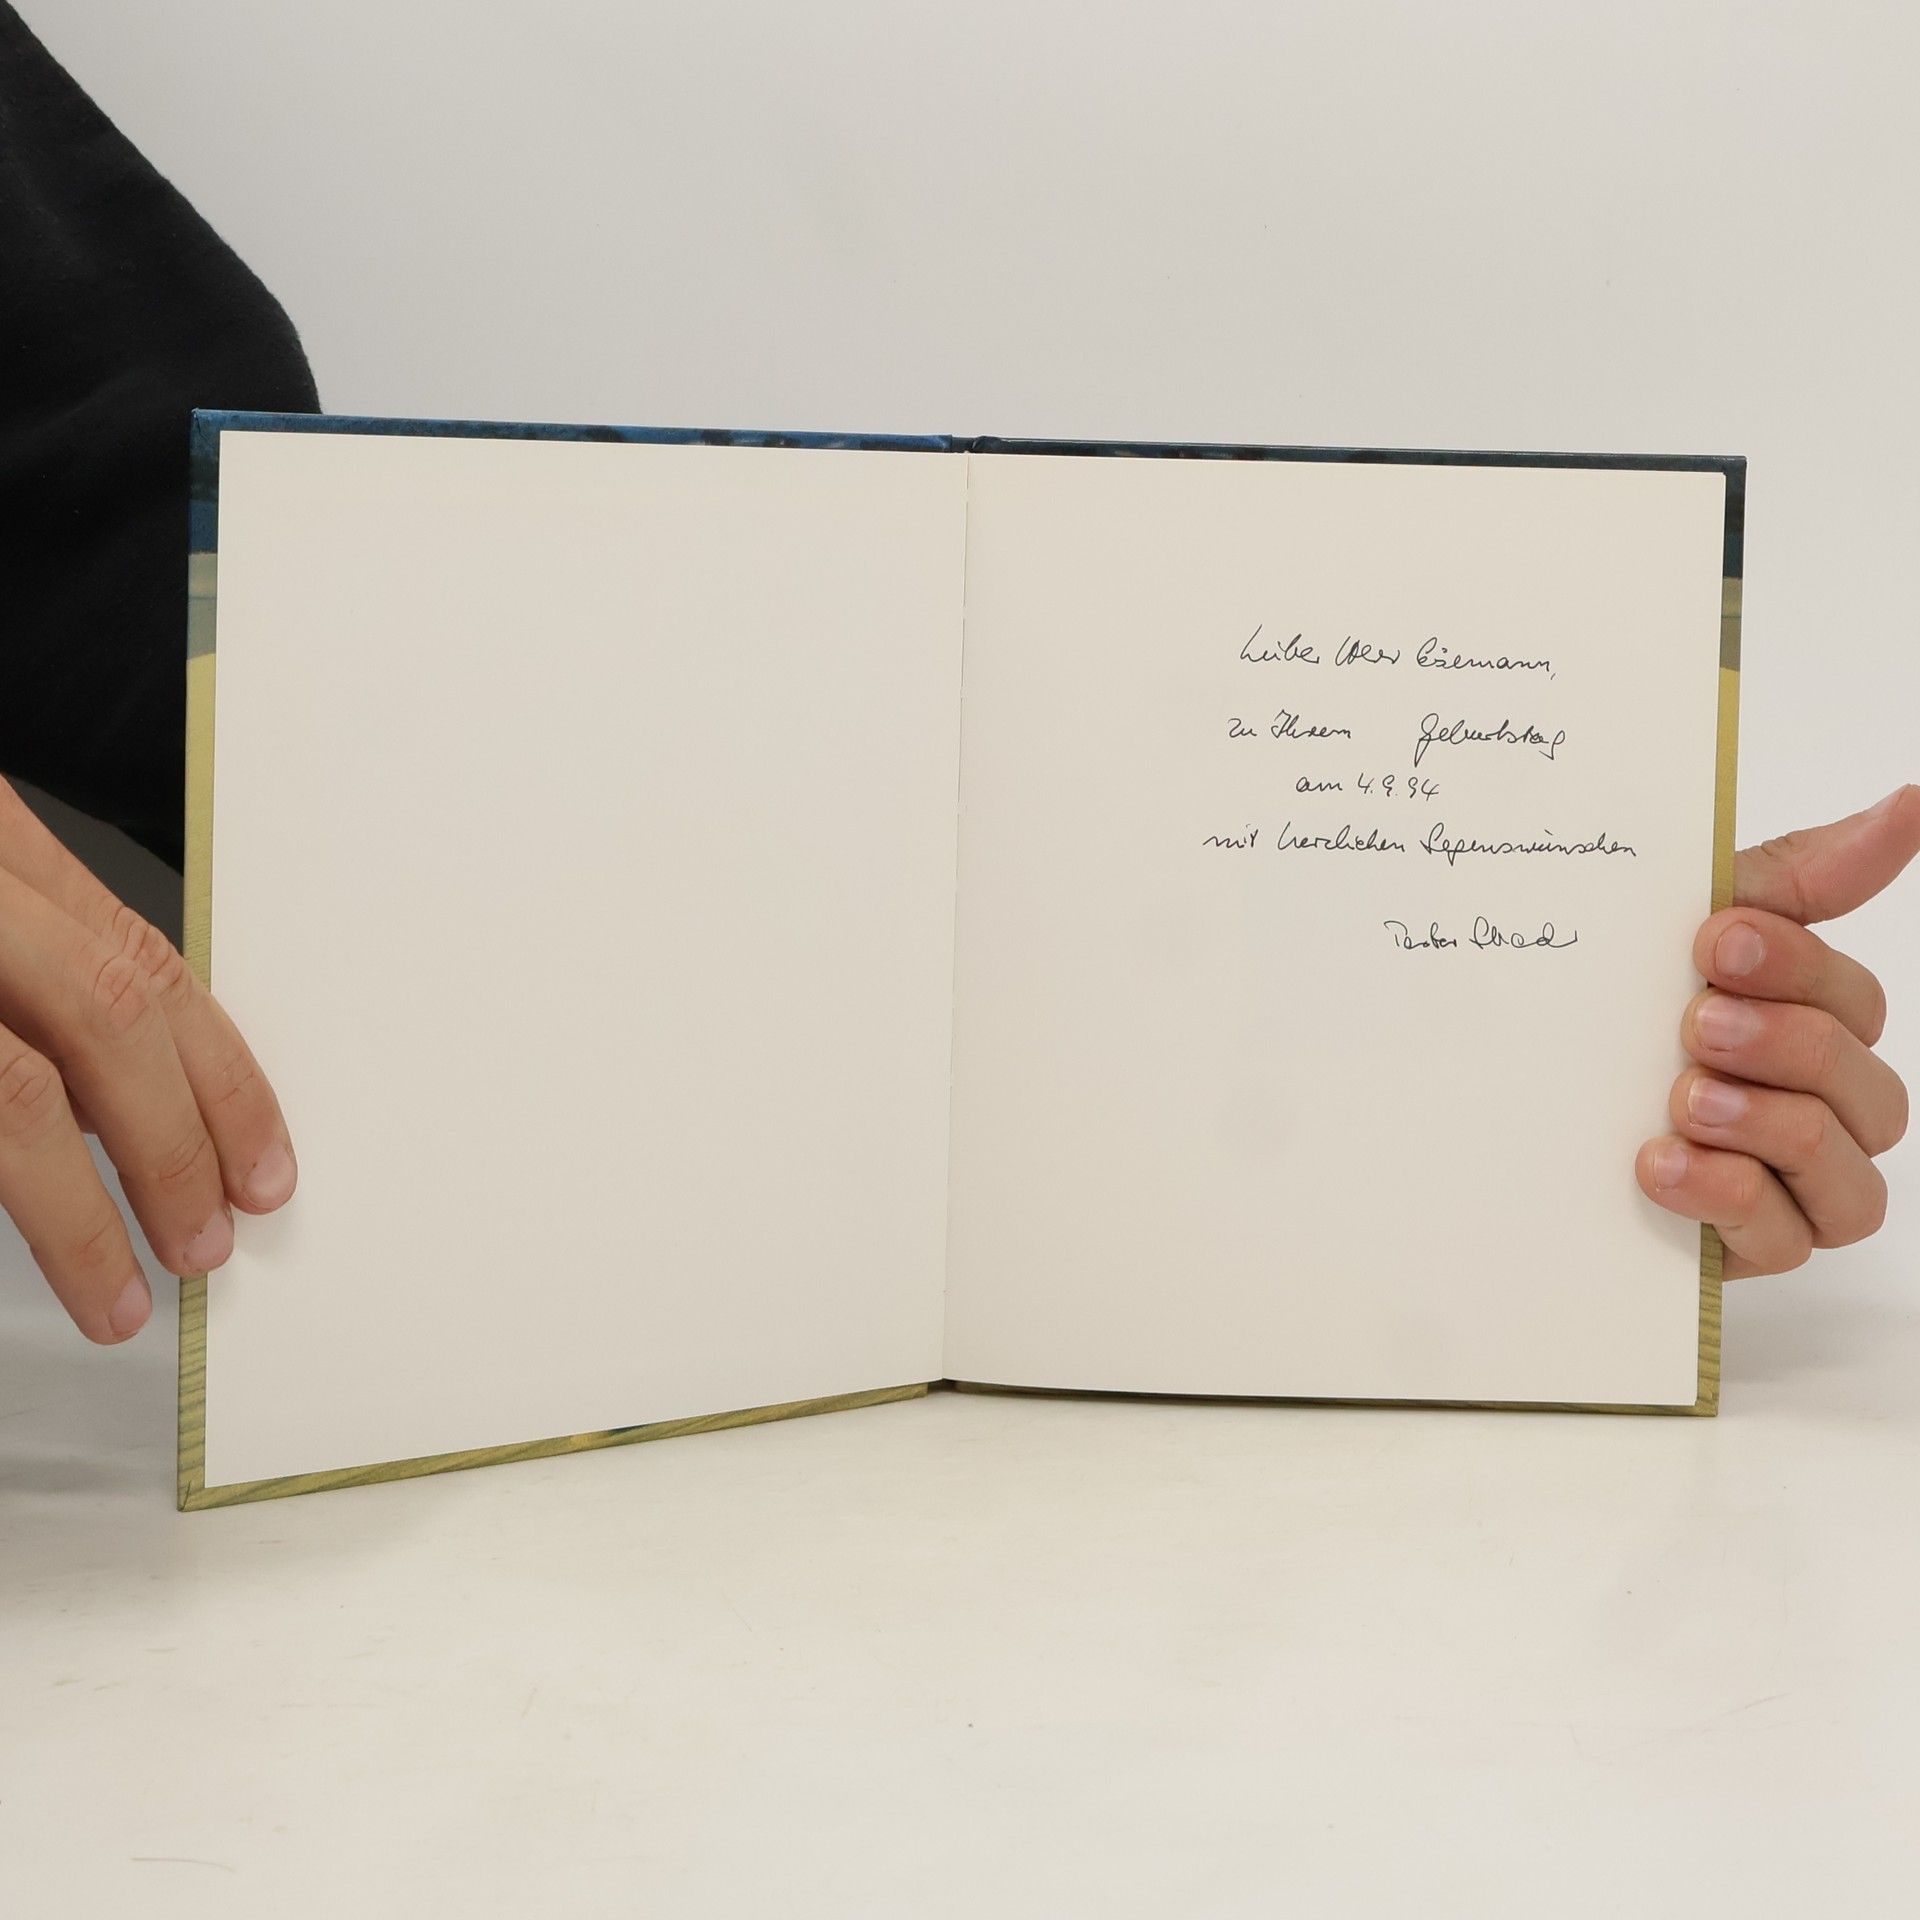 Lieber Herr Eisemann,
zu Ihrem Geburtstag
am 4.9.94
mit herzlichen Segenswünschen
Pastor